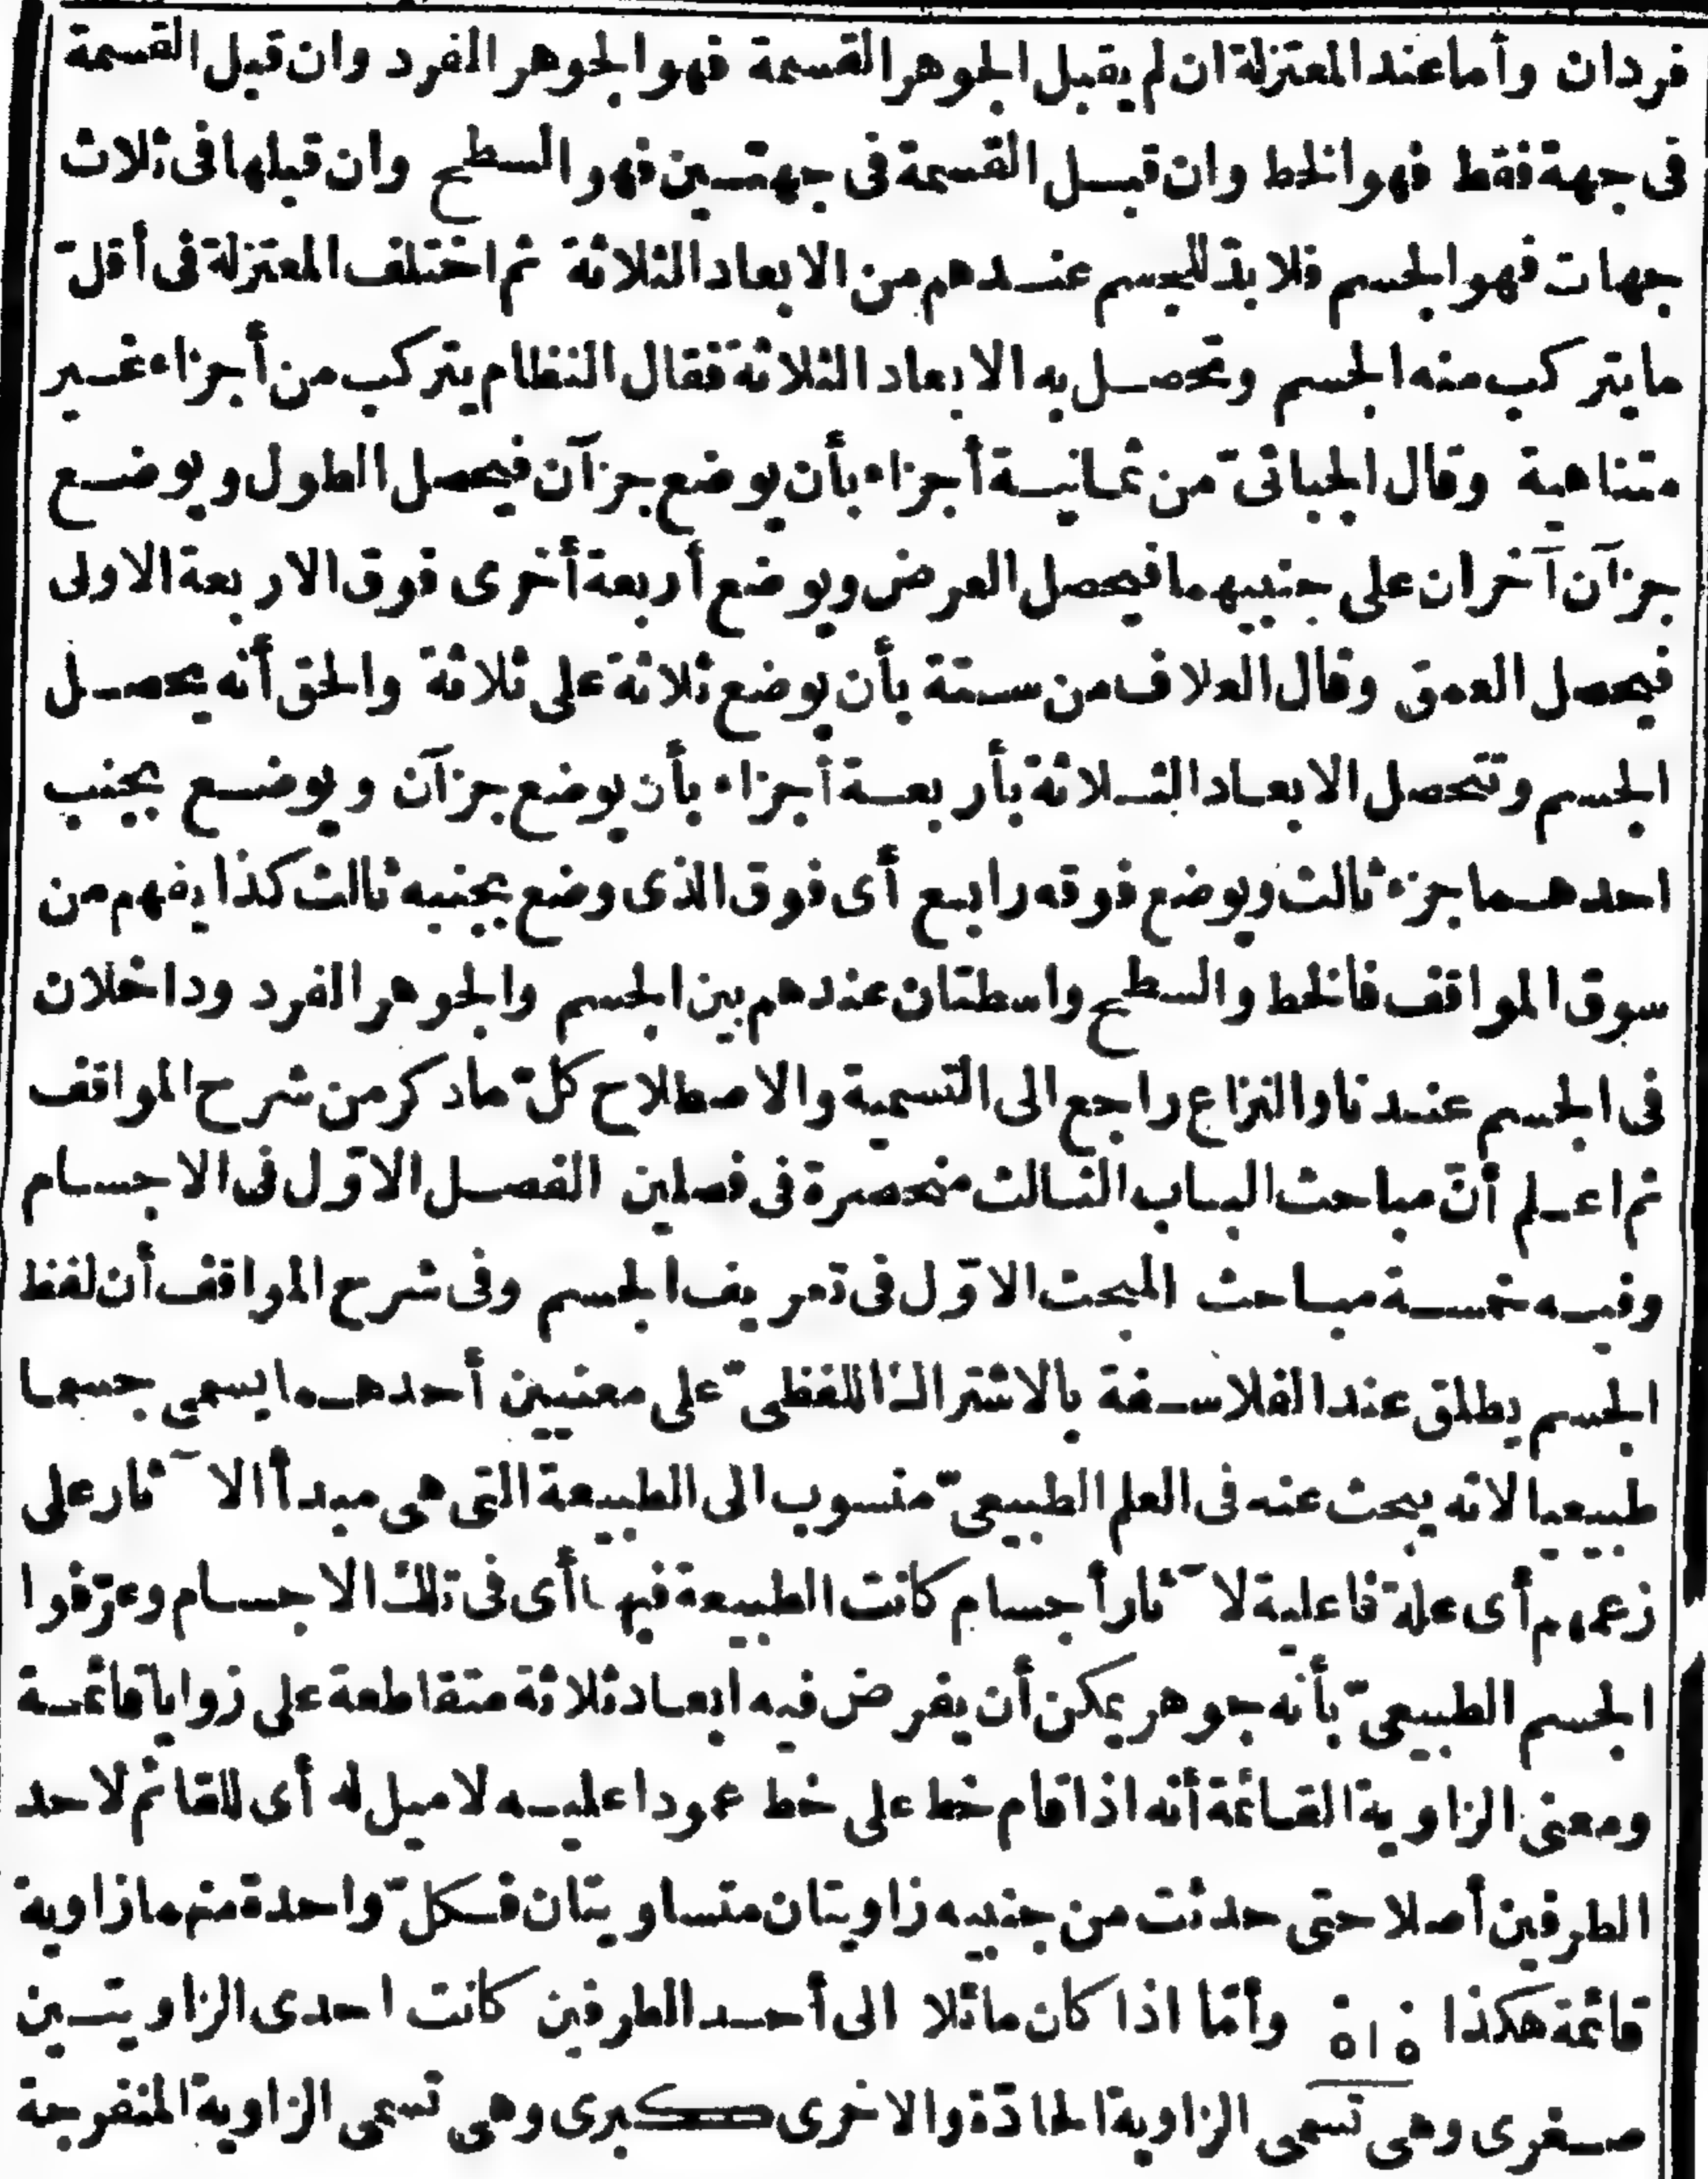 فردان وأما عند المعتزلة ان لم يقبل الجوهر القسمة فهو الجوهر الفرد وان قبل القسمة
فى جهة فقط فهو الخط وان قبل القسمة فى جهتين فهو السطح وان قبلها فى ثلاث
جهات فهو الجسم فلا بدّ للجسم عندهم من الابعاد الثلاثة ثم اختلف المعتزلة فى أقلّ
ما يتركب منه الجسم وتحصل به الابعاد الثلاثة فقال النظام يتركب من أجزاء غير
متناهية وقال الجبائىّ من ثمانية أجزاء بأن يوضع جزآن فيحصل الطول ويوضع
جزآن آخران على جنبيهما فيحصل العرض ويوضع أربعة أخرى فوق الاربعة الاولى
فيحصل العمق وقال العلاف من ستة بأن يوضع ثلاثة على ثلاثة والحق أنه يحصل
الجسم وتتحصل الابعاد الثلاثة بأربعة أجزاء بأن يوضع جزآن ويوضع بجنب
احدهما جزء ثالث ويوضع فوقه رابع أى فوق الذى وضع بجنبه ثالث كذا يفهم من
سوق المواقف فالخط والسطح واسطتان عندهم بين الجسم والجوهر الفرد وداخلان
فى الجسم عندنا والنزاع راجع الى التسمية والاصطلاح كلّ ما ذكر من شرح المواقف
ثم اعلم أنّ مباحث الباب الثالث منحصرة فى فصلين الفصل الاوّل فى الاجسام
وفيه خمسة مباحث المبحث الاوّل فى تعريف الجسم وفى شرح المواقف أن لفظ
الجسم يطلق عند الفلاسفة بالاشتراك اللفظىّ على معنيين أحدهما يسمى جسما
طبيعيا لانه يبحث عنه فى العلم الطبيعىّ منسوب الى الطبيعة التى هى مبدأ الآثار على
زعمهم أى علة فاعلية لآثار أجسام كانت الطبيعة فيها أى فى تلك الاجسام وعرّفوا
الجسم الطبيعىّ بأنه جوهر يمكن أن يفرض فيه ابعاد ثلاثة متقاطعة على زوايا قائمة
ومعنى الزاوية القائمة أنه اذا قام خط على خط عمودا عليه لا ميل له أى للقائم لاحد
الطرفين أصلا حتى حدثت من جنبيه زاويتان متساويتان فكلّ واحدة منهما زاوية
قائمة هكذا وأمّا اذا كان مائلا الى أحد الطرفين كانت احدى الزاويتين
صغرى وهى تسمى الزاوية الحادّة والاخرى كبرى وهى تسمى الزاوية المنفرجة